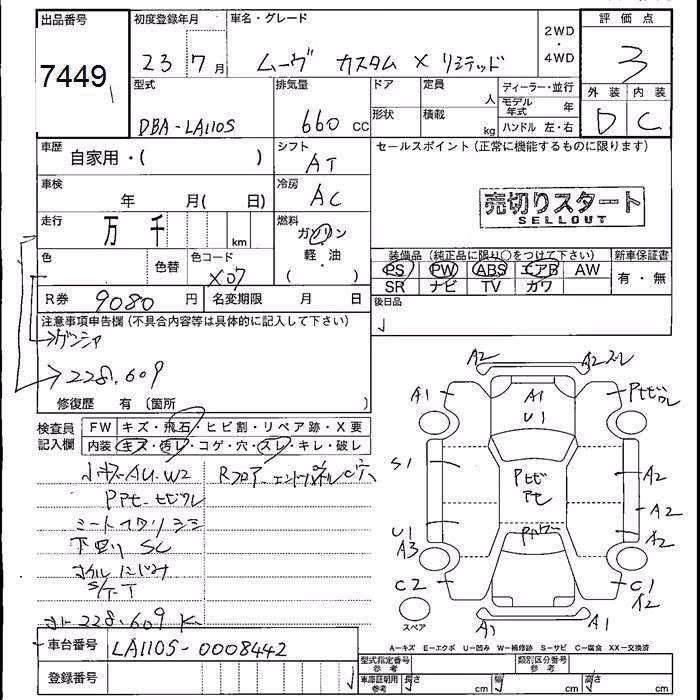 出品番号 初度登録年月 車名・グレード 2WD ・ 4WD 評価点
7449 23 7月 ムーヴ カスタム X リミテッド 3
型式 排気量 ドア 定員 人 ディーラー・並行 外装 内装
DBA-LA110S 660 cc 形状 積載 kg モデル年式 年 D C
ハンドル 左・右
車歴 自家用・( ) シフト AT セールスポイント (正常に機能するものに限ります)
車検 年 月( 日) 冷房 AC
売切りスタート
SELLOUT
走行 万 千 km 燃料 ガソリン ・ 軽油 ( )
色 色替 色コード X07
装備品 (純正品に限り○をつけて下さい) 新車保証書
PS PW ABS エアB AW 有・無
SR ナビ TV カワ
R券 9080 円 名変期限 月 日 後日品
注意事項申告欄 (不具合内容等は具体的に記入して下さい)
ゲンシャ
228,609
修復歴 有 〔箇所 〕
検査員記入欄 FW キズ・飛石・ヒビ割・リペア跡・X要
内装 キズ・汚レ・コゲ・穴・スレ・キレ・破レ
小キズ AU.W2 Rフロア
下回り SC
228,609 K
A2 A2スレ
A1 A1 U1
S1 A2
A2
U1 A3 A2
C2 C1 A2
A1
スペア
A-キズ E-エクボ U-凹み W-補修跡 S-サビ C-腐食 XX-交換済
車台番号 LA110S-0008442
型式指定番号 参考 類別区分番号 参考
登録番号 車庫証明用 参考 長さ cm 幅 cm 高さ cm